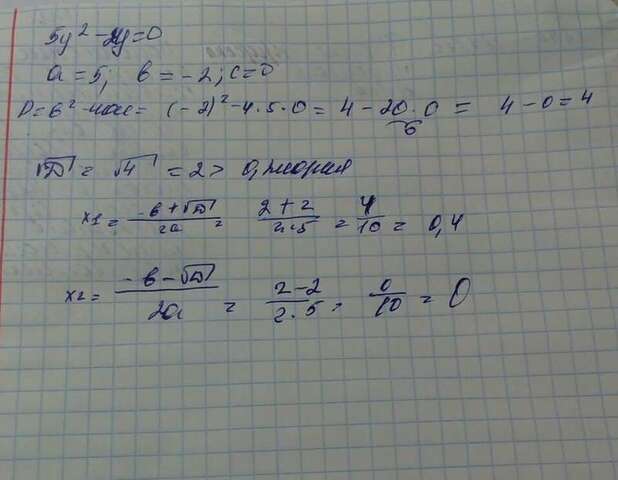 5y² - 2y = 0
a = 5; в = -2; c = 0
D = в² - 4ac = (-2)² - 4·5·0 = 4 - 20·0 = 4 - 0 = 4
√D = √4 = 2 > 0,
x1 = (-в + √D)/2a = (2 + 2)/2·5 = 4/10 = 0,4
x2 = (-в - √D)/2a = (2 - 2)/2·5 = 0/10 = 0